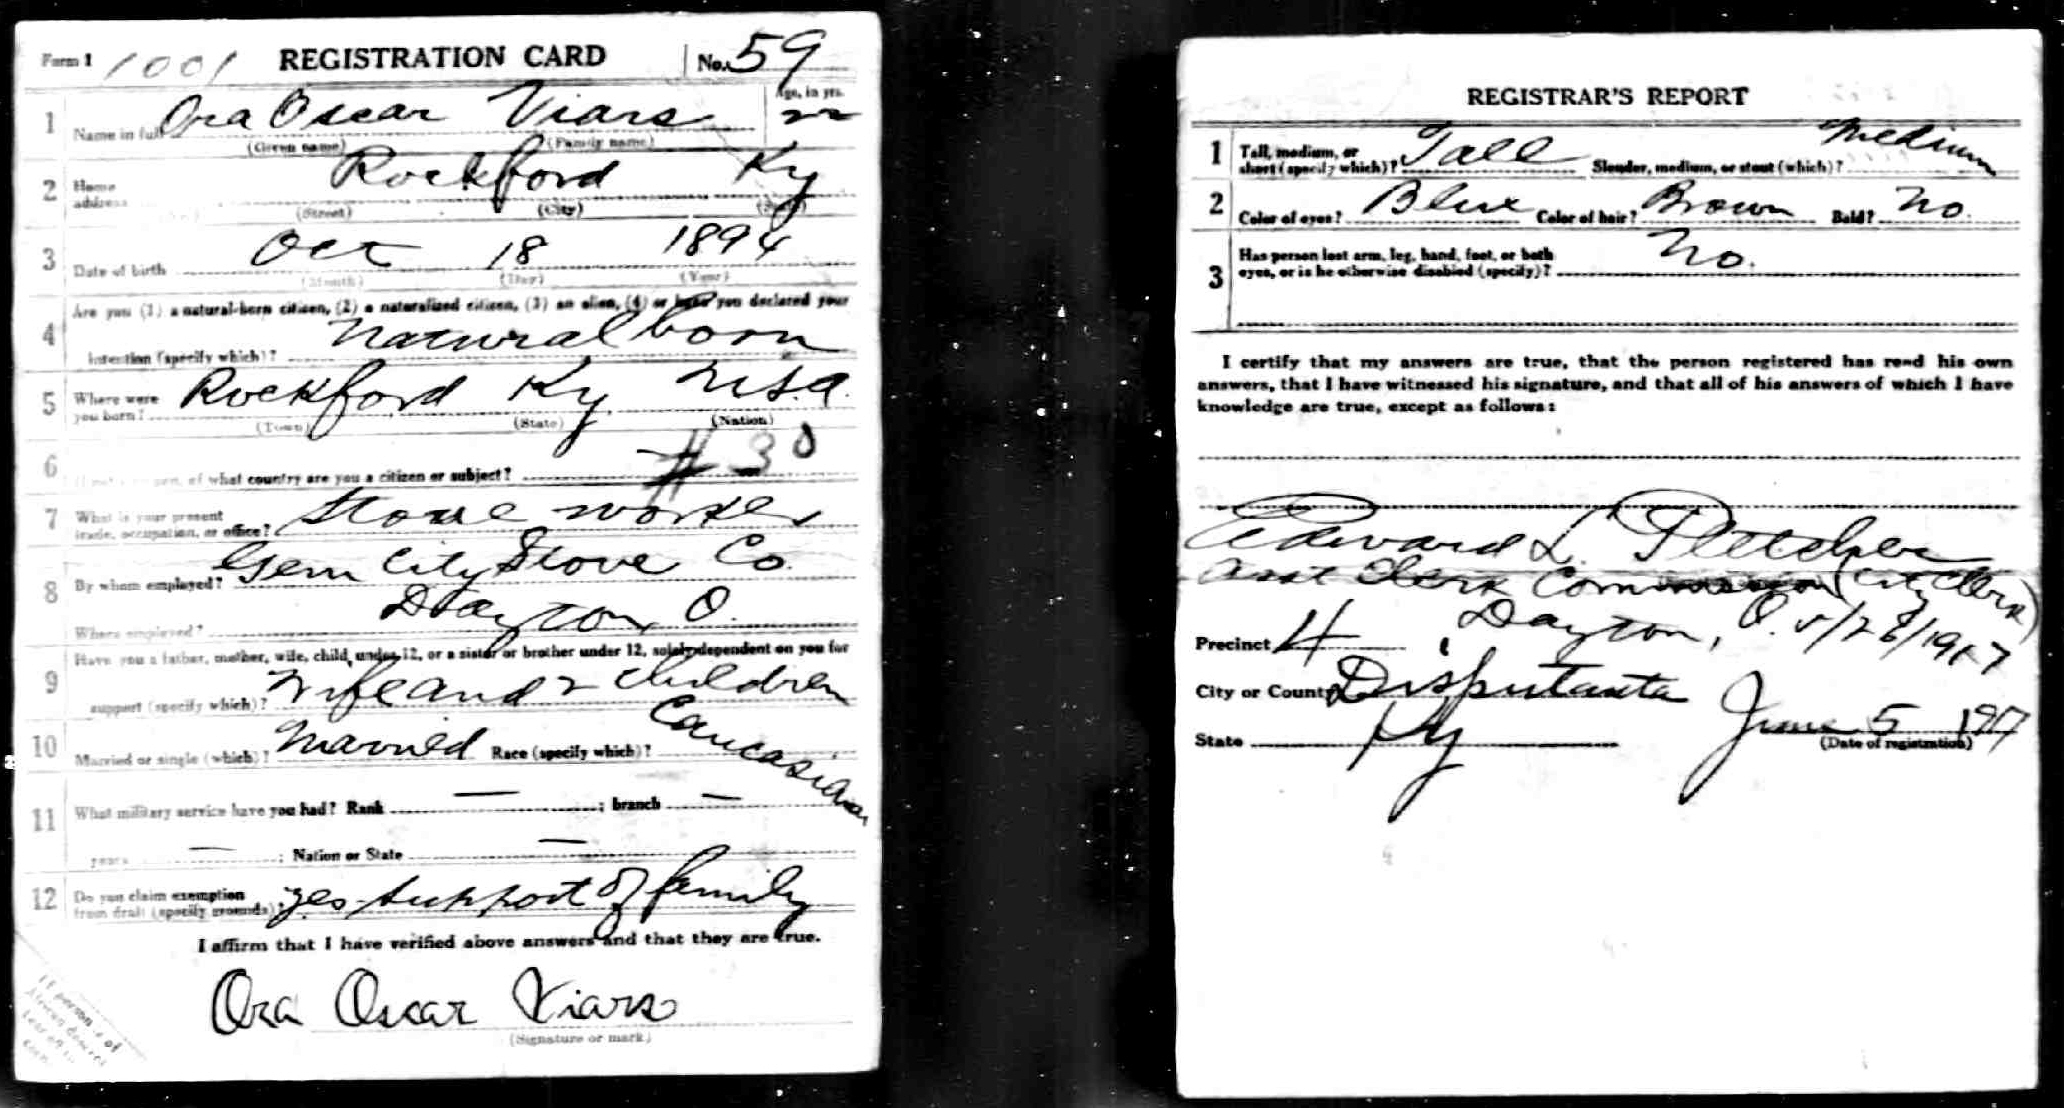 Form 1 1001 REGISTRATION CARD No. 59
1 Name in full Ora Oscar Viars Age, in yrs. 22
(Given name) (Family name)
2 Home address Rockford Ky
(Street) (City) (State)
3 Date of birth Oct 18 1894
(Month) (Day) (Year)
4 Are you (1) a natural-born citizen, (2) a naturalized citizen, (3) an alien, (4) or have you declared your
intention (specify which)? Natural born
5 Where were you born? Rockford Ky U.S.a.
(Town) (State) (Nation)
6 of what country are you a citizen or subject? # 30
7 What is your present trade, occupation, or office? Stove worker
8 By whom employed? Gem City Stove Co.
Where employed? Dayton, O.
9 Have you a father, mother, wife, child under 12, or a sister or brother under 12, solely dependent on you for
support (specify which)? Wife and 2 children
10 Married or single (which)? Married Race (specify which)? Caucasian
11 What military service have you had? Rank — ; branch —
years — ; Nation or State —
12 Do you claim exemption from draft (specify grounds)? yes support of family
I affirm that I have verified above answers and that they are true.
Ora Oscar Viars
(Signature or mark)
If person is of
African descent
tear off
corner
REGISTRAR'S REPORT
1 Tall, medium, or short (specify which)? Tall Slender, medium, or stout (which)? Medium
2 Color of eyes? Blue Color of hair? Brown Bald? No.
3 Has person lost arm, leg, hand, foot, or both eyes, or is he otherwise disabled (specify)? No.
I certify that my answers are true, that the person registered has read his own
answers, that I have witnessed his signature, and that all of his answers of which I have
knowledge are true, except as follows:
Edward L. Pletcher
Asst Clerk Commission (City Clerk)
Precinct 4 Dayton, O. 5/28/1917
City or County Disputanta June 5 1917
State Ky (Date of registration)